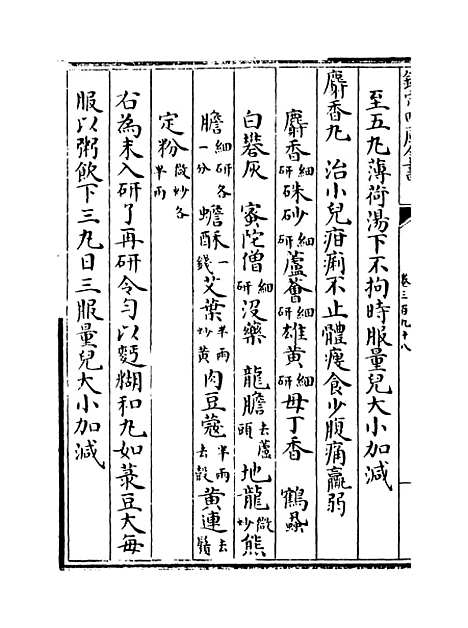 欽定四庫全書
卷三百九十八
至五丸薄荷湯下不拘時服量兒大小加減
麝香丸 治小兒疳痢不止體瘦食少腹痛羸弱
麝香細研 硃砂細研 蘆薈細研 雄黃細研 母丁香 鶴虱
白礬灰 蜜陀僧細研 沒藥 龍膽去蘆頭 地龍微炒 熊
膽細研各一分 蟾酥一錢 艾葉半兩炒黃 肉豆蔻半兩去殼 黃連去鬚
定粉微炒各半兩
右為末入研了再研令勻以麪糊和丸如菉豆大每
服以粥飲下三丸日三服量兒大小加減